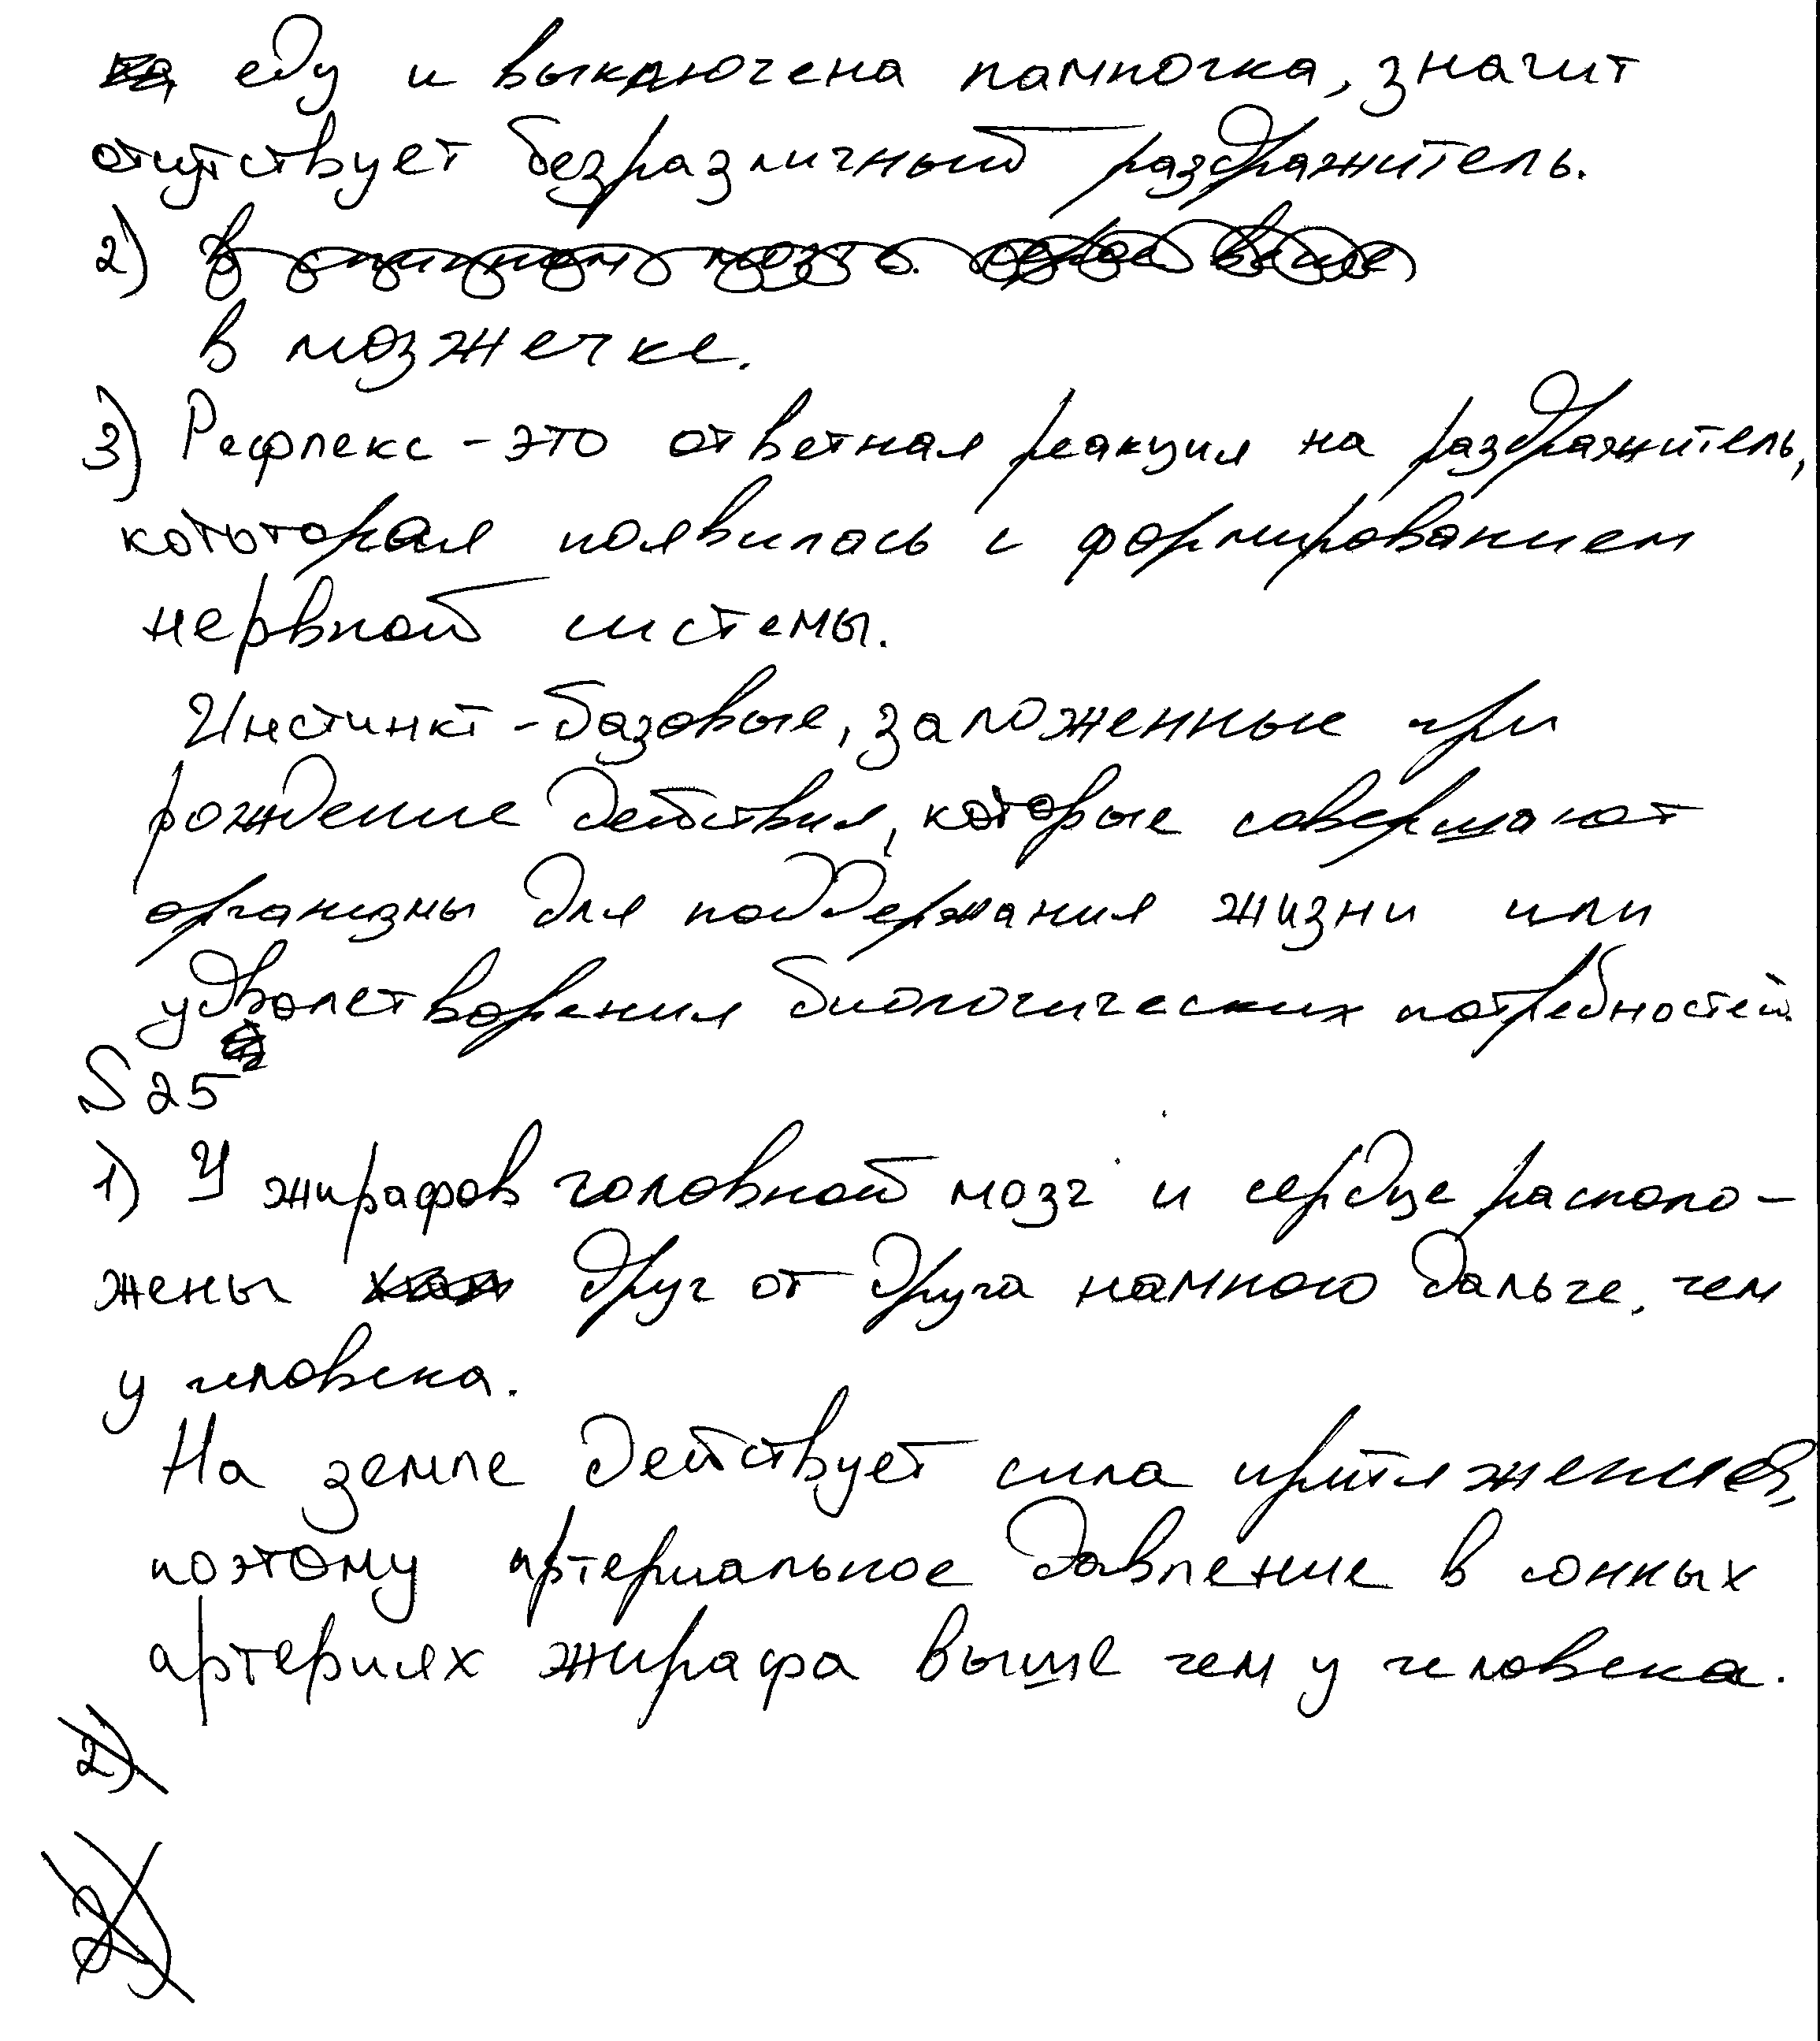 еду и выключена лампочка, значит
отсутствует безразличный раздражитель.
2) в спинном мозге.
в мозжечке.
3) Рефлекс - это ответная реакция на раздражитель,
кототорая появилась с формированием
нервной системы.
Инстинкт - базовые, заложенные при
рождение действия, которые совершают
организмы для поддержания жизни или
удволетворения биологических потребностей.
§ 25
1) У жирафов головной мозг и сердце располо-
жены друг от друга намного дальше, чем
у человека.
На земле действует сила притяжения,
поэтому артериальное давление в сонных
артериях жирафа выше чем у человека.
2)